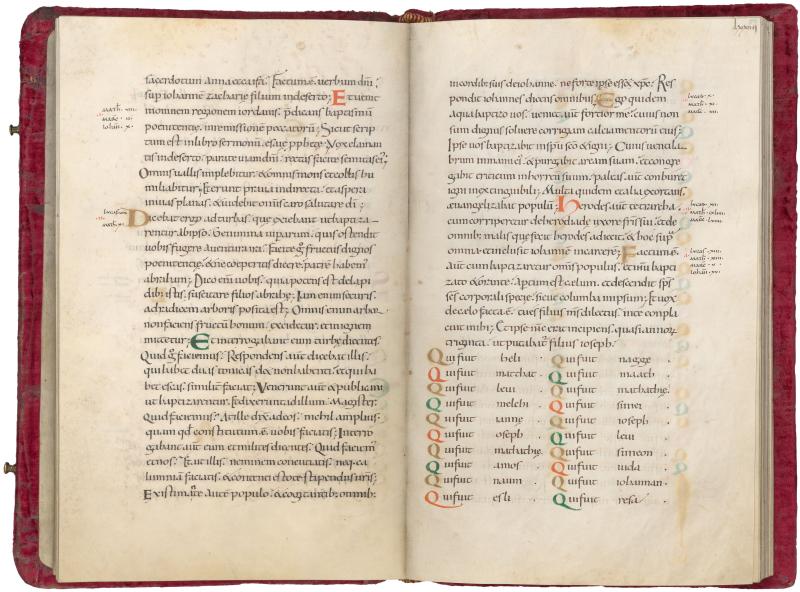 sacerdotum anna & caifa. Factum ē uerbum dn̄i
sup iohannē zacharię filium in deserto; Et uenit
in omnem regionem iordanis. p̄dicans baptismū
poenitentię. in remissionē peccatorū; Sicut scrip
tum est in libro sermonū esaię pphetę. Vox claman
tis in deserto. parate uiam dn̄i. rectas facite semitas ei';
Omnis uallis implebitur. & omnis mons & collis hu
miliabitur; Et erunt praua in directa. & aspera
in uias planas. & uidebit omnis caro salutare dī;
Dicebat ergo ad turbas. quę exiebant ut baptiza
rentur ab ipso. Genimina uiperarum. quis ostendit
uobis fugere a uentura ira; Facite g° fructus dignos
poenitentię. & ne coeperitis dicere. patrē habem'
abraham; Dico eni uobis. quia potens est d's de lapi
dib; istis. suscitare filios abrahę; Iam enim securis
ad radicem arboris posita est; Omnis enim arbor
non faciens fructū bonum. excidetur. et in ignem
mittetur; Et interrogabant eum turbę dicentes.
Quid g° faciemus; Respondens aut̄ dicebat illis.
qui hab& duas tunicas. d& non habenti. et qui ha
bet escas. similit faciat; Venerunt aut̄ & publicani
ut baptizarentur. & dixerunt ad illum. Magister.
quid faciemus; At ille dix̄ ad eos. nichil amplius.
quam qd constitutum ē uobis faciatis; Interro
gabant aut̄ eum et milites dicentes. Quid faciem'
et nos; Et ait illis. neminem concutiatis. neq; ca
lumniā faciatis. & contenti estote stipendiis uris;
Existimante aut̄ populo. & cogitantib; omnib;
in cordib; suis de iohanne. ne forte ipse ess& xp̄c; Res
pondit iohannes dicens omnibus; Ego quidem
aqua baptizo uos. ueni& aut̄ fortior me. cuius non
sum dignus soluere corrigiam calciamentorū eius;
Ipse uos baptizabit in sp̄u sc̄o & igni; Cuius uentila
brum in manu ei'. & purgabit aream suam. et congre
gabit triticum in horreū suum. paleas aut̄ comburet
igni inextinguibili; Multa quidem et alia exortans.
euangelizabat populū; Herodes aut̄ tetrarcha.
cum corriperetur de herodiade uxore fr̄is sui. et de
omnib; malis quę fecit herodes adiecit. & hoc sup
omnia. et inclusit iohannē in carcere; Factum ē
aut̄ cum baptizaretur omnis populus. et ih̄u bapti
zato & orante. aptum est cęlum. et descendit sp̄s
sc̄s corporali specie. sicut columba in ipsum; Et uox
de celo facta ē. tu es filius m̄s dilectus. in te compla
cuit mihi; Et ipse ih̄c erat incipiens. quasi annorū
triginta. ut putabat' filius ioseph.
Qui fuit heli. Qui fuit nagge.
Qui fuit matthat. Qui fuit maath.
Qui fuit leui. Qui fuit mathathię.
Qui fuit melchi. Qui fuit simei.
Qui fuit ianne. Qui fuit ioseph.
Qui fuit oseph. Qui fuit leui.
Qui fuit mathathię. Qui fuit simeon.
Qui fuit amos. Qui fuit iuda.
Qui fuit naum. Qui fuit iohannan.
Qui fuit esli. Qui fuit resa.